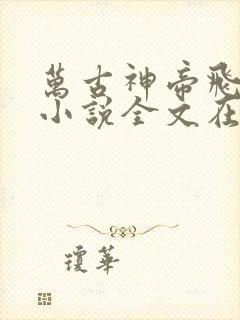 萬古神帝飛
小說全文在
瓊華